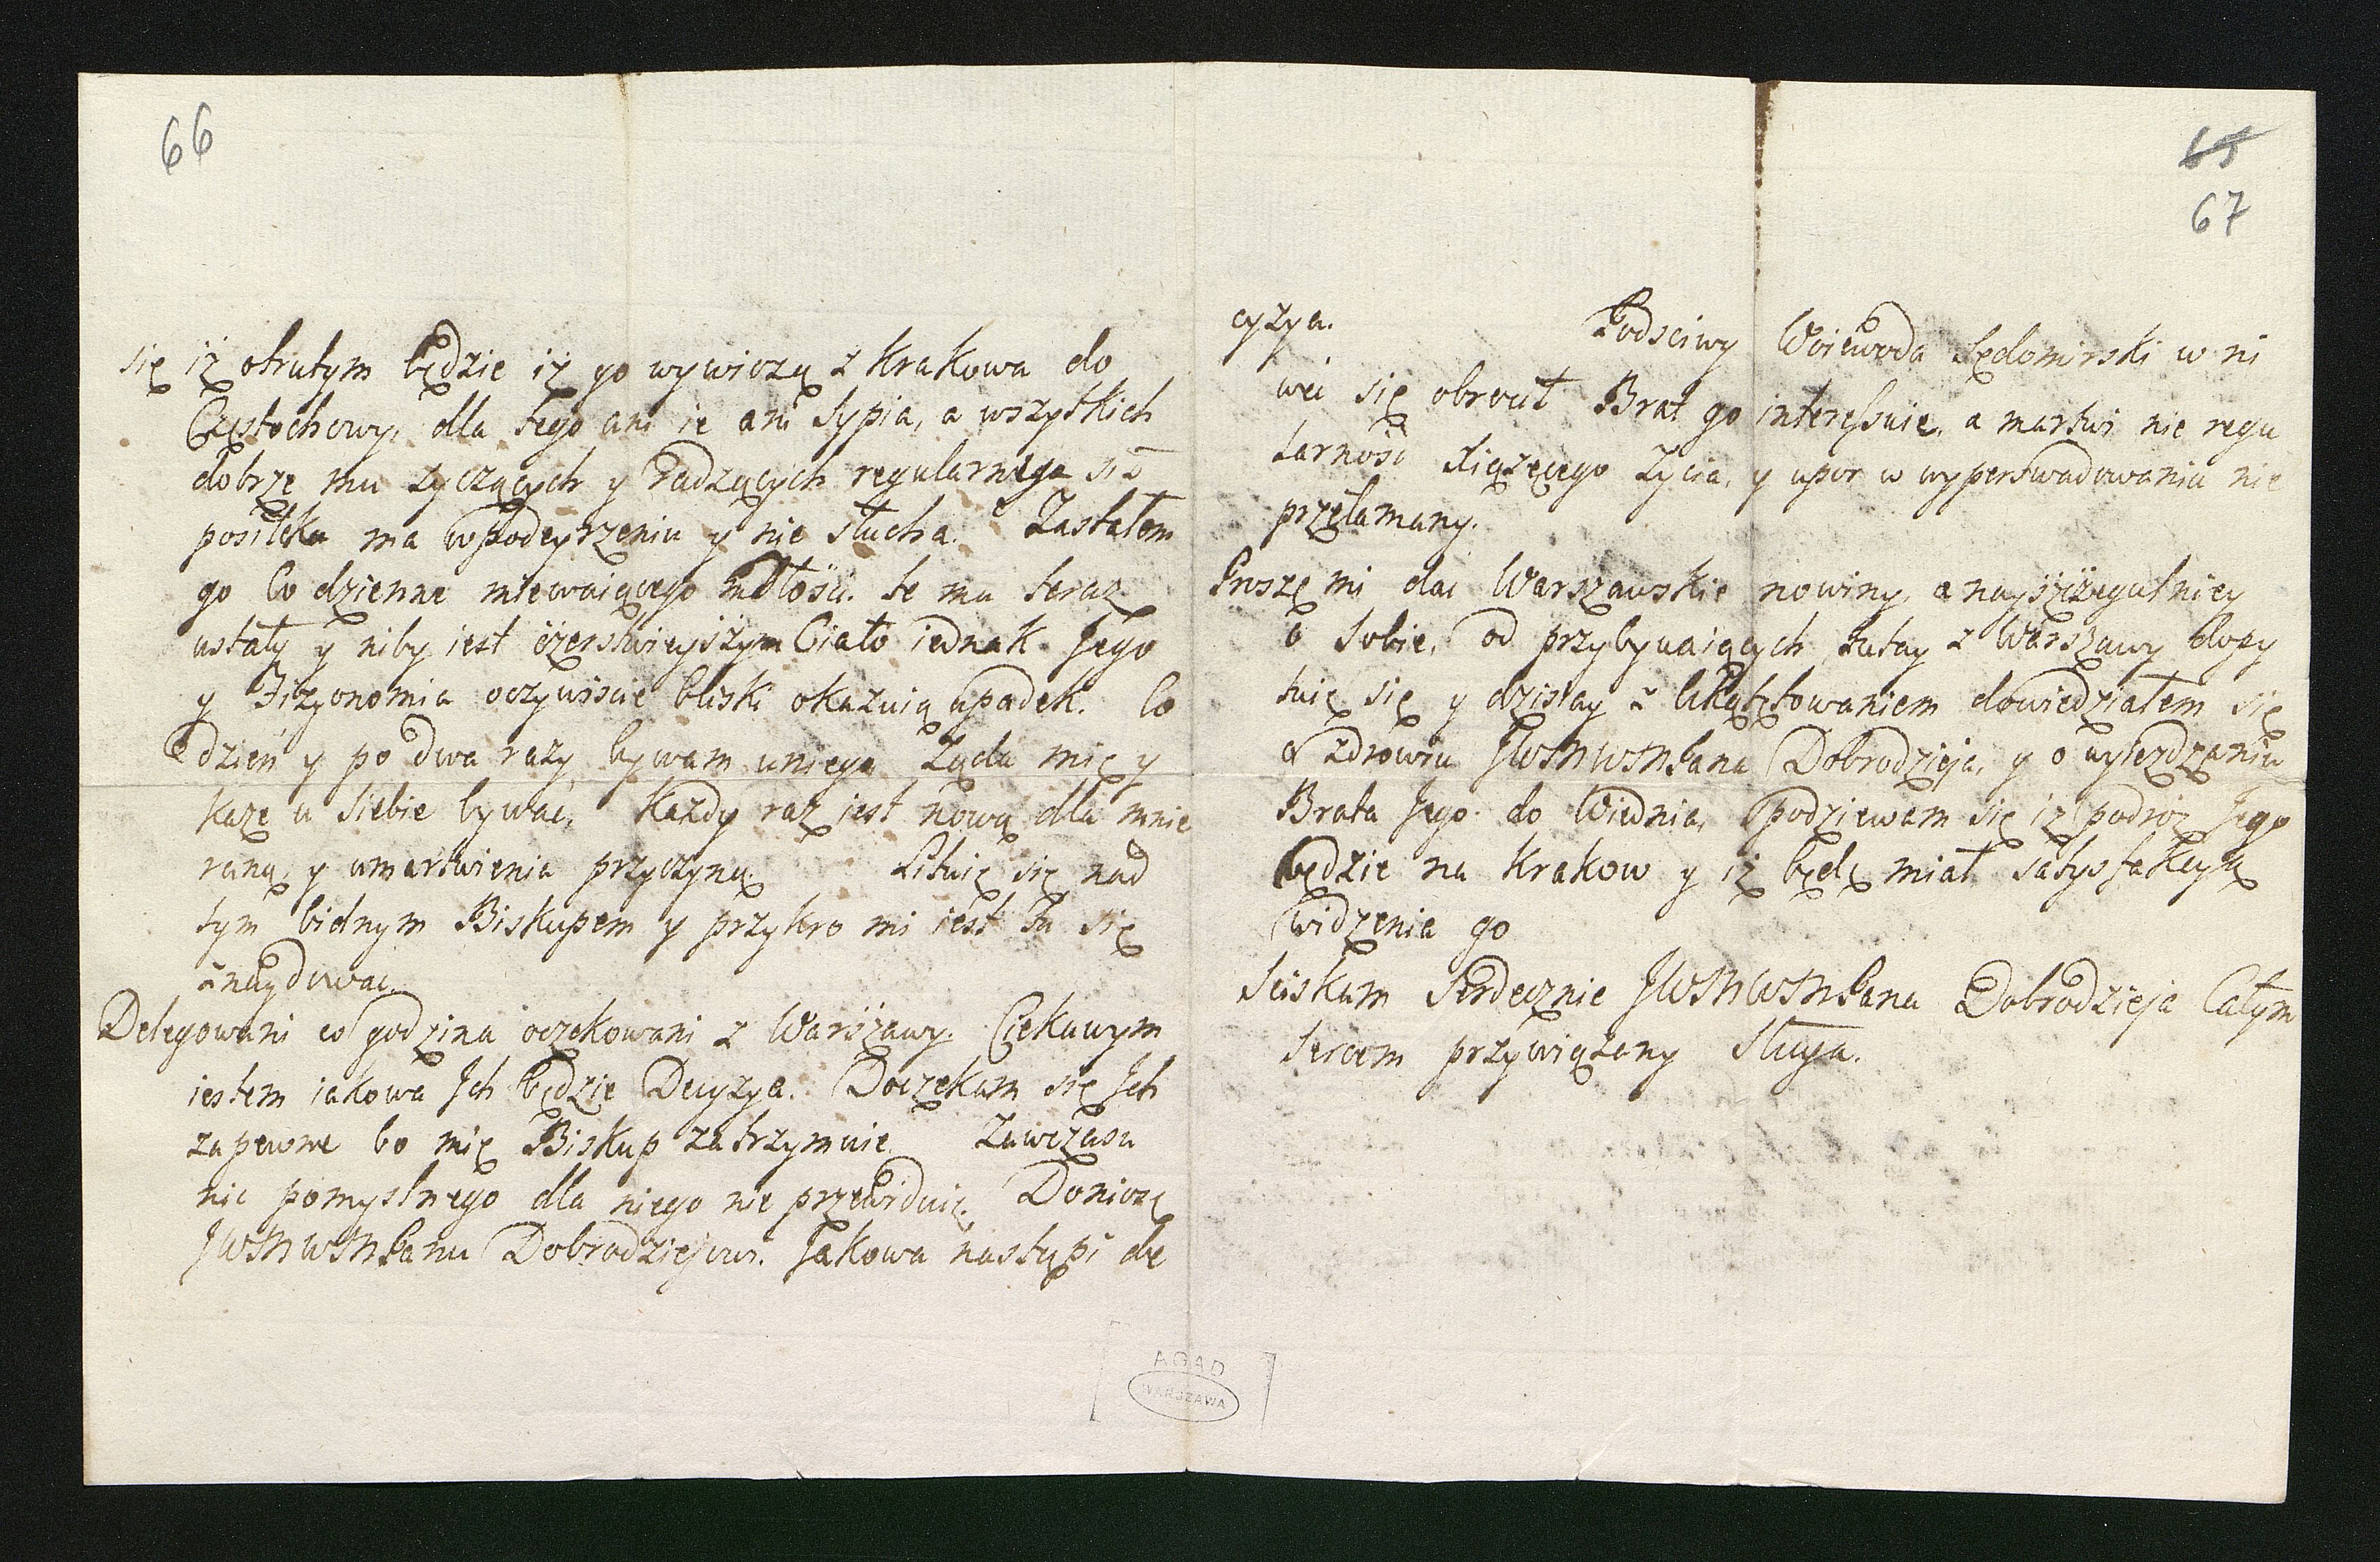 66
się iż otrutym będzie iż go wywiozą z Krakowa do
Częstochowy, dla tego ani ie ani sypia, a wszystkich
dobrze mu życzących y radzących regularnego
posiłku ma w podeyrzeniu y nie słucha. Zastałem
go Co dzienne miewaiącego mdłości. te ma teraz
ustały y niby iest czerstwieyszym Ciało iednak Jego
y Fizyonomia oczywiscie bliski okazuią upadek. Co
dzień y po dwa razy bywam u niego Ząda mię y
każe u siebie bywać. Każdy raz iest nową dla mnie
raną y umartwienia przyczyną. Lituię się nad
tym biednym Biskupem y przykro mi iest tu się
znaydować.
Delegowani co godzina oczekowani z Warszawy. Ciekawym
iestem iakowa Ich będzie Decyzya. Doczekam się Ich
zapewne bo mię Biskup zatrzymuie. Zawczasu
nic pomyslnego dla niego nie przewiduię. Doniosę
JWWMWMPanu Dobrodziejowi. Jakowa nastąpi de
65
67
cyzya. Podsciwy Woiewoda Sędomirski w ni
wec się obrocił Brat go interessuie, a martwi nie regu
larność Xiążęcego życia, y upor w wyperswadowaniu nie
przełamany.
Proszę mi dać Warszawskie nowiny, a nayszczegulniey
o sobie, od przybywaiących tutay z Warszawy dopy
tuię się y dzisiay z Ukątętowaniem dowiedziałem się
o zdrowiu JWWMWMPana Dobrodzieja, y o wyieżdzaniu
Brata Jego do Wiednia, spodziewam się iż podróż Jego
będzie na Krakow y iż będę miał satysfakcyą
widzenia go
Sciskam Serdecznie JWWMWMPana Dobrodzieja Całym
Sercem przywiązany Sługa.
AGAD
WARSZAWA